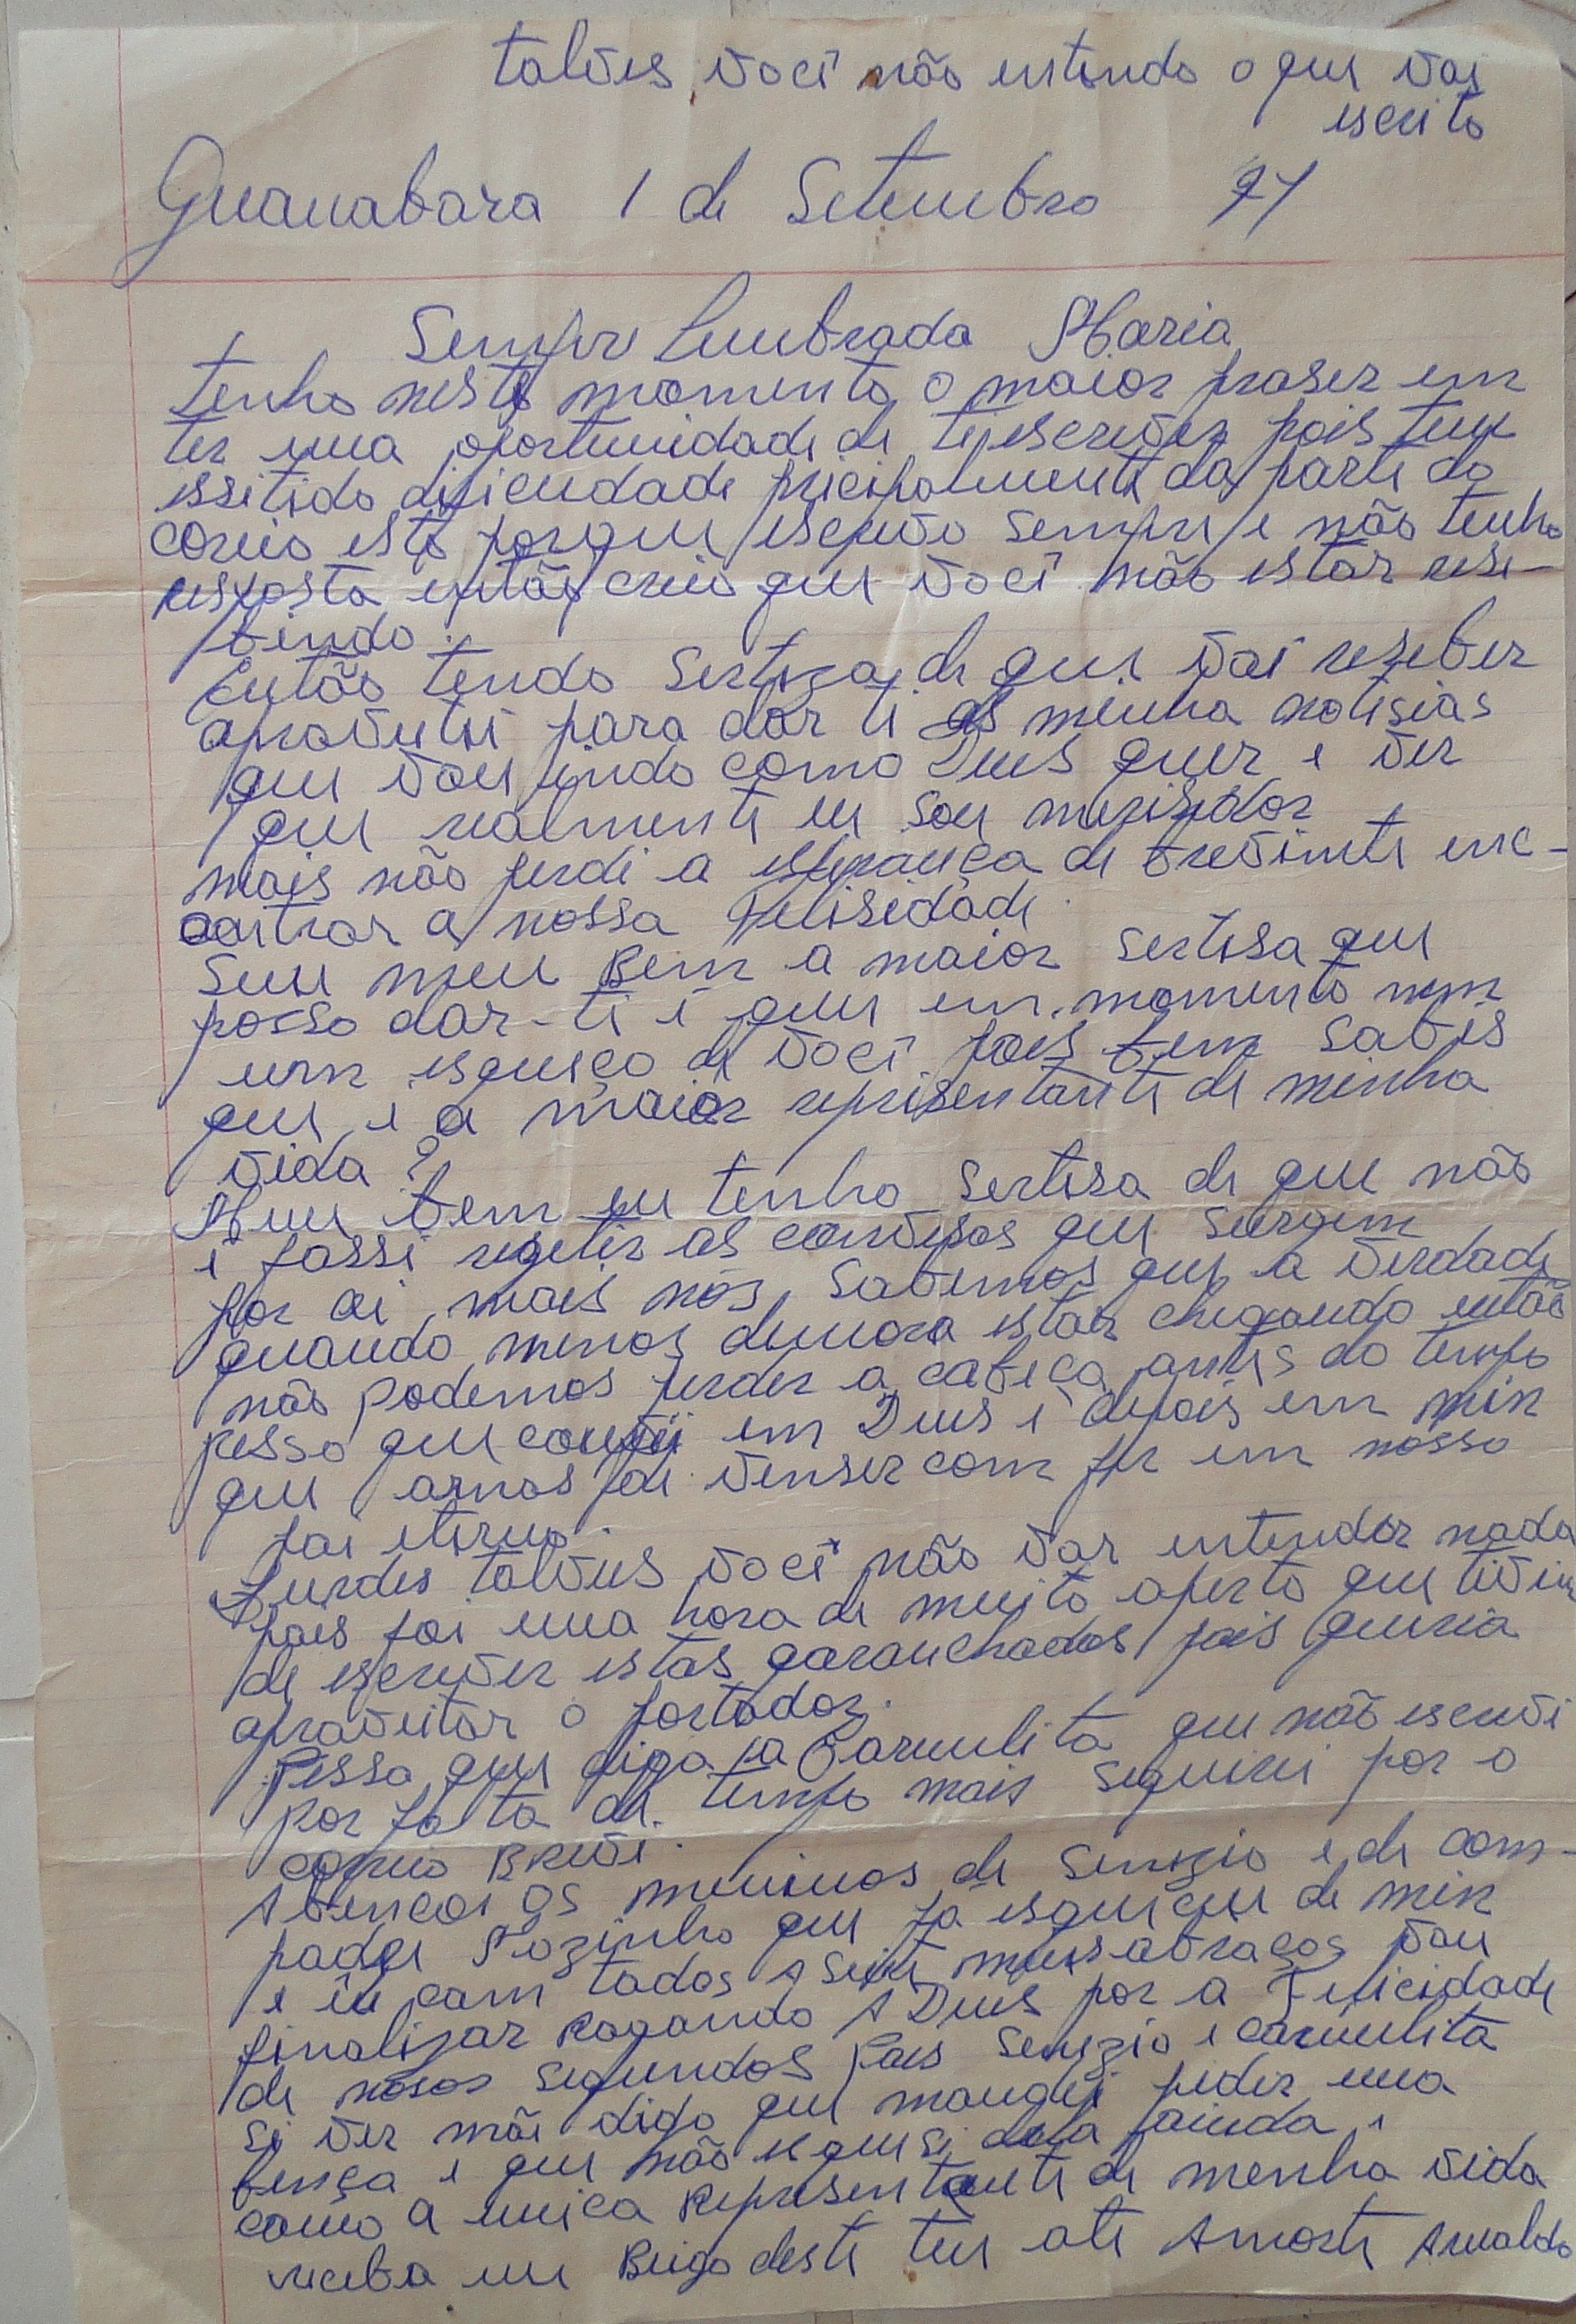 talves você não entenda o que vai
escrito
Guanabara 1 de Setembro 71
Sempre lembrada Maria
tenho neste momento o maior praser em
ter uma oportunidade de te escrever pois tem
essitido dificuldade pricipalmente da parte do
coreio isto porque escrevo sempre e não tenho
resposta então creio que você não estar rese-
bendo.
Então tendo Serteza de que vai reseber
aproveitei para dar te as menha notisias
que vou indo como Deus quer e ver
que realmente eu sou merisedor
mais não perdi a esperança de brevimente enc-
ontrar a nossa felisidade.
Seu meu Bem a maior sertesa que
posso dar-te é que em momento nem
um esqueço de você pois bem sabes
que e a maior representante de minha
vida?
Meu bem eu tenho sertesa de que não
é fassi regetir as conversas que surgem
por ai mais nós sabemos que a verdade
quando menos demora estar chegando então
não podemos perder a cabeça antes do tempo
pesso que confii em Deus e depois em min
que amos de venser com fe em nosso
pai eterno.
Lurdes talveis você não var entender nada
pois foi uma hora de muito aperto que tivim
de escrever estas garanchados pois queria
aproveitar o portador.
Pessa que diga a Carmelita que não escrevi
por falta de tempo mais seguirei por o
correio Breve.
Abençoi os meninos de Senizio e de com-
padre Zozinho que ja esqueceu de min
e eu com todos A seite meus abraços vou
finalizar Rogando A Deus por a Felicidade
de nosos segundos Pais Senizio e carmelita
Si ver mãe diga que mandei pedir uma
bença e que não esquesi dela ainda e
como a unica Representante de menha vida
receba um Beigo deste teu ate Amorte Arnaldo